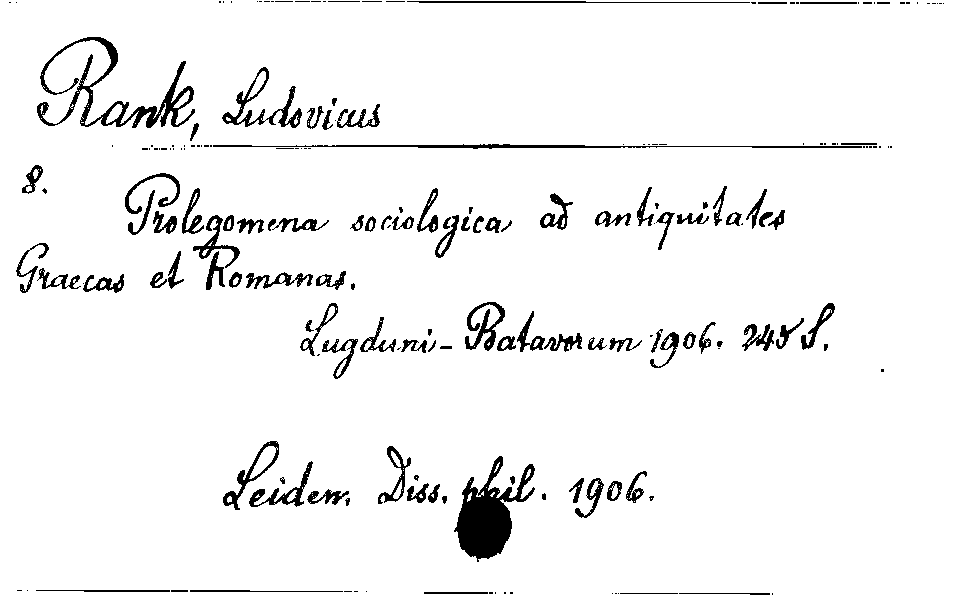 Rank, Ludovicus
8.
Prolegomena sociologica ad antiquitates
Graecas et Romanas.
Lugduni-Batavorum 1906. 245 S.
Leiden, Diss. phil. 1906.